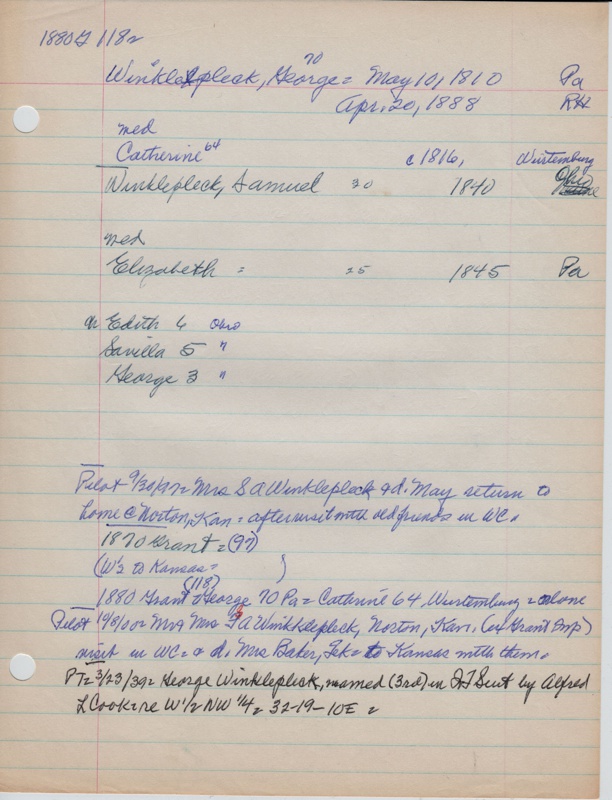 1880 G 1182
70
Winklepleck, George = May 10, 1810 Pa
Apr. 20, 1888 RH
med
Catherine 64 c 1816, Wurtemburg
Winklepleck, Samuel 30 1840 Ohio
med
Elizabeth = 25 1845 Pa
ch Edith 6 Ohio
Savilla 5 "
George 3 "
Pilot 9/30/97= Mrs S A Winklepleck & d. May return to
home @ Norton, Kan = after visit with old friends in WC.
1870 Grant = (97)
(W's to Kansas = )
(118)
1880 Grant = George 70 Pa = Catherine 64 Wurtemburg = alone
Pilot Mr & Mrs S A Winklepleck, Norton, Kan. (ex Grant Imp)
visit in WC = & d. Mrs Baker, Tek = to Kansas with them.
PT= 3/23/39= George Winklepleck, named (3rd) in QT Suit by Alfred
L Cook = re W 1/2 NW 1/4 = 32-19-10E =